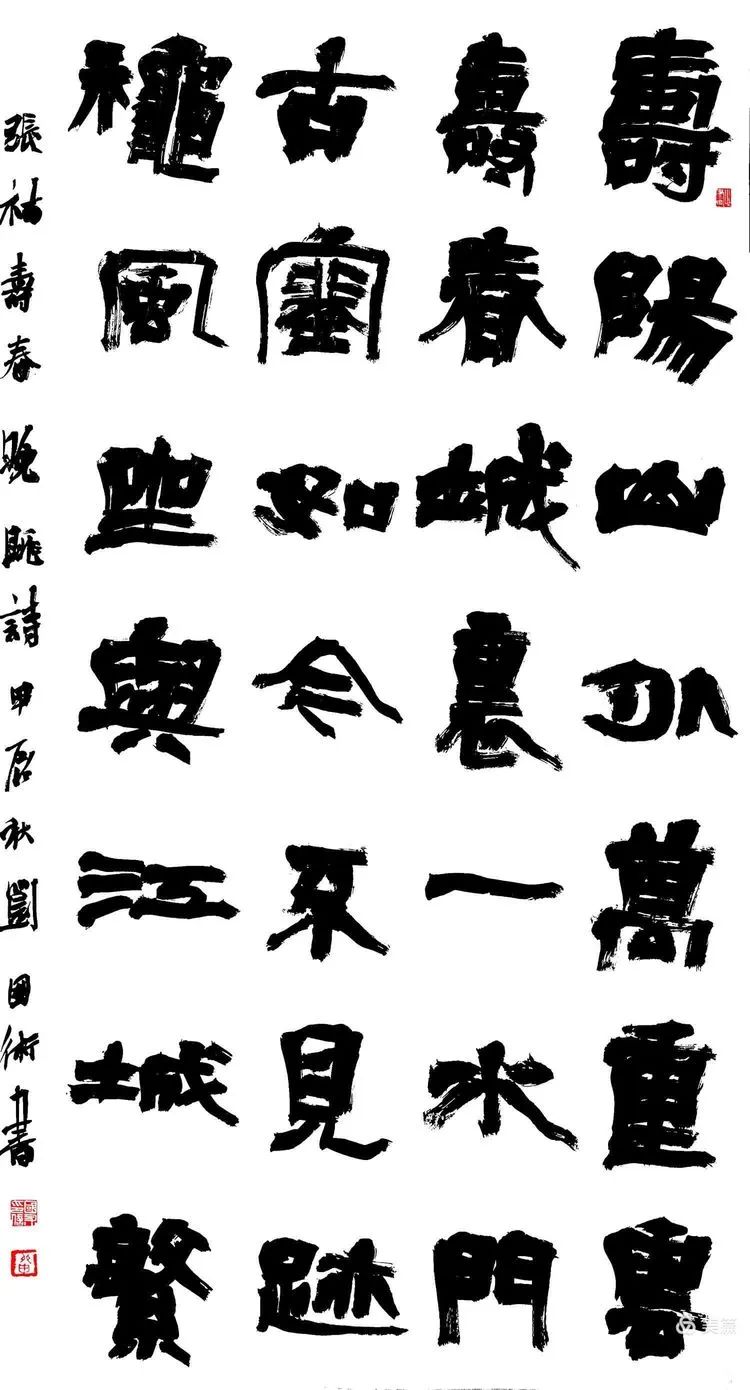 壽陽山外萬重雲
壽春城裏一水門
古如今不見跡
龝風與江城
張祜壽春晚眺詩甲辰秋劉國術書
美篇